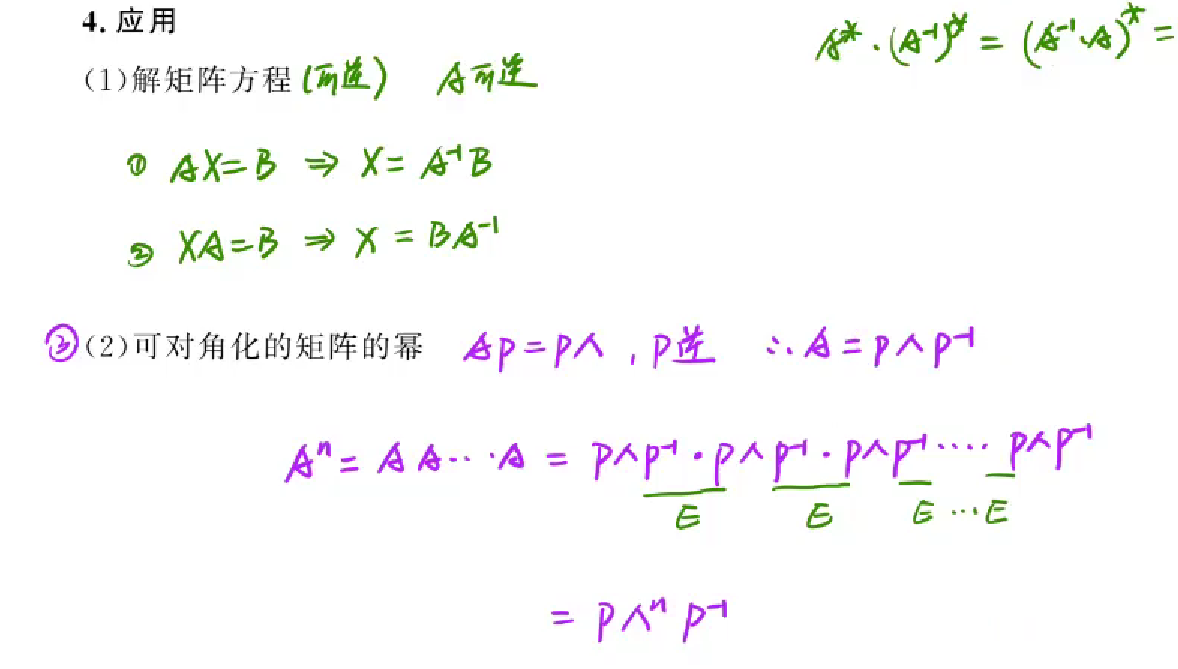 4. 应用
A*·(A⁻¹)* = (A⁻¹·A)* =
(1)解矩阵方程 (可逆) A可逆
① AX=B ⇒ X= A⁻¹B
② XA=B ⇒ X = BA⁻¹
③(2)可对角化的矩阵的幂 AP=PΛ , P逆 ∴ A=PΛP⁻¹
Aⁿ= A A⋯·A = PΛP⁻¹·PΛP⁻¹·PΛP⁻¹⋯·PΛP⁻¹
E E E ⋯E
= PΛⁿP⁻¹